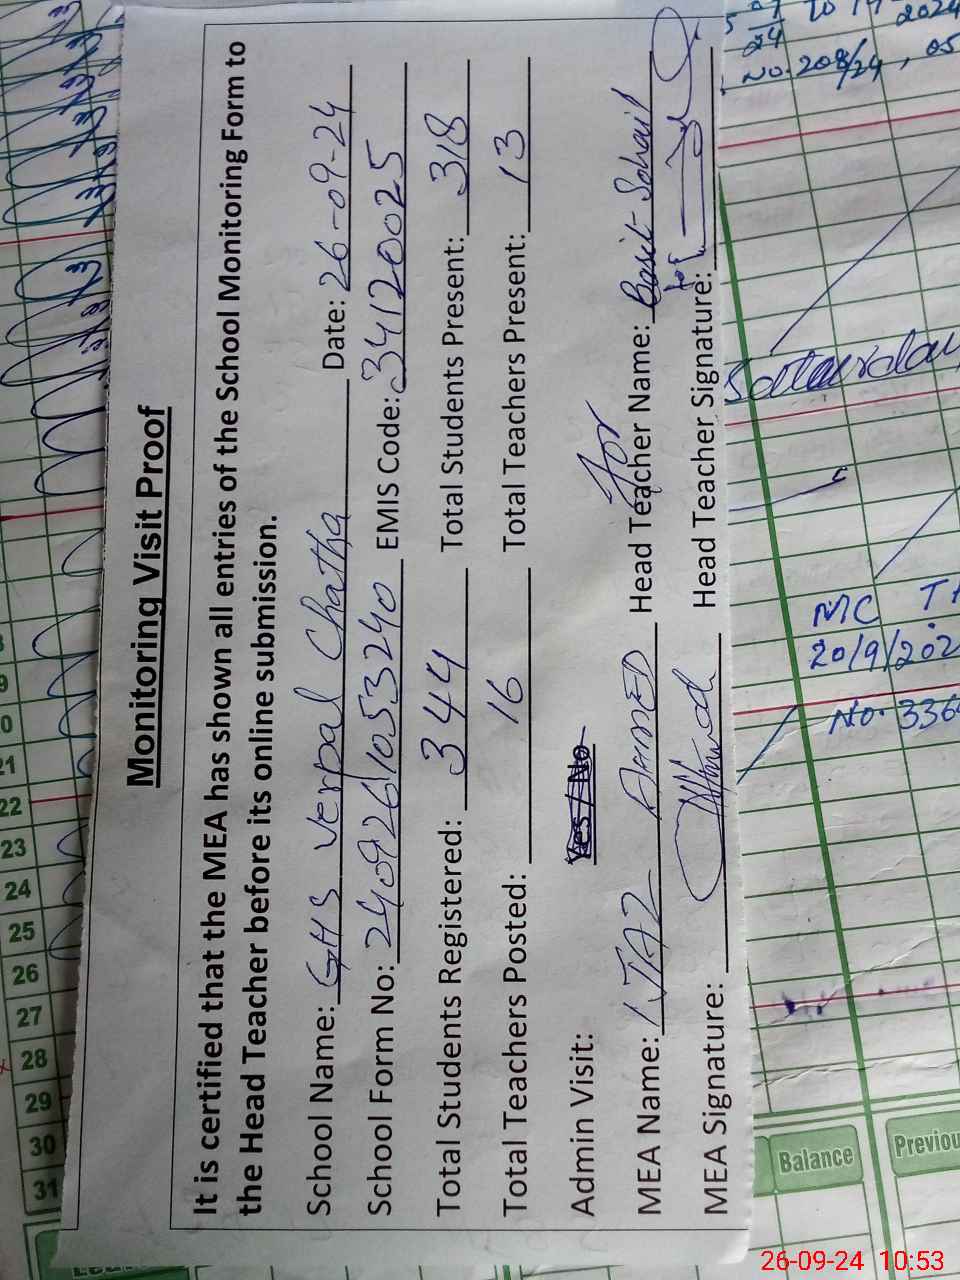 Monitoring Visit Proof
It is certified that the MEA has shown all entries of the School Monitoring Form to
the Head Teacher before its online submission.
School Name: GHS Verpal Chatha Date: 26-09-24
School Form No: 2409261053240 EMIS Code: 34120025
Total Students Registered: 344 Total Students Present: 318
Total Teachers Posted: 16 Total Teachers Present: 13
Admin Visit: Yes / No
For
MEA Name: IJAZ AHMED Head Teacher Name: Basit Sohail
for
MEA Signature: Head Teacher Signature:
24
2024
No. 208/24, 05
MC
20/9/202
No. 336
21
22
23
24
25
26
27
28
29
30
31
Balance
Previou
26-09-24 10:53